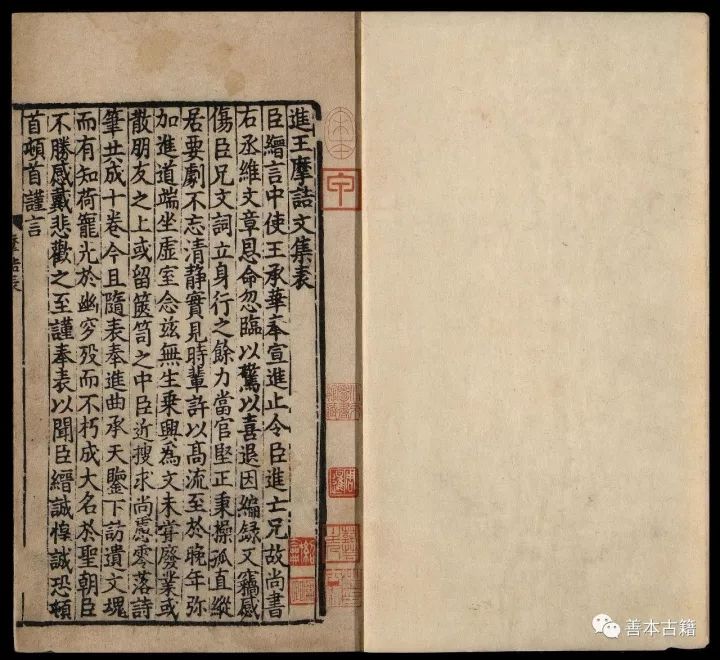 進王摩詰文集表
臣縉言中使王承華奉宣進止令臣進亡兄故尚書
右丞維文章恩命忽臨以驚以喜退因編錄又竊感
傷臣兄文詞立身行之餘力當官堅正秉操孤直縱
居要劇不忘清静實見時輩許以高流至於晚年弥
加進道端坐虛室念兹無生乗興為文未甞廢業或
散朋友之上或留篋笥之中臣近搜求尚慮零落詩
筆共成十卷今且隨表奉進曲承天鑒下訪遺文魂
而有知荷寵光於幽穸歿而不朽成大名於聖朝臣
不勝感戴悲歡之至謹奉表以聞臣縉誠惶誠恐頓
首頓首謹言
摩詰表
宋本
甲
善本古籍